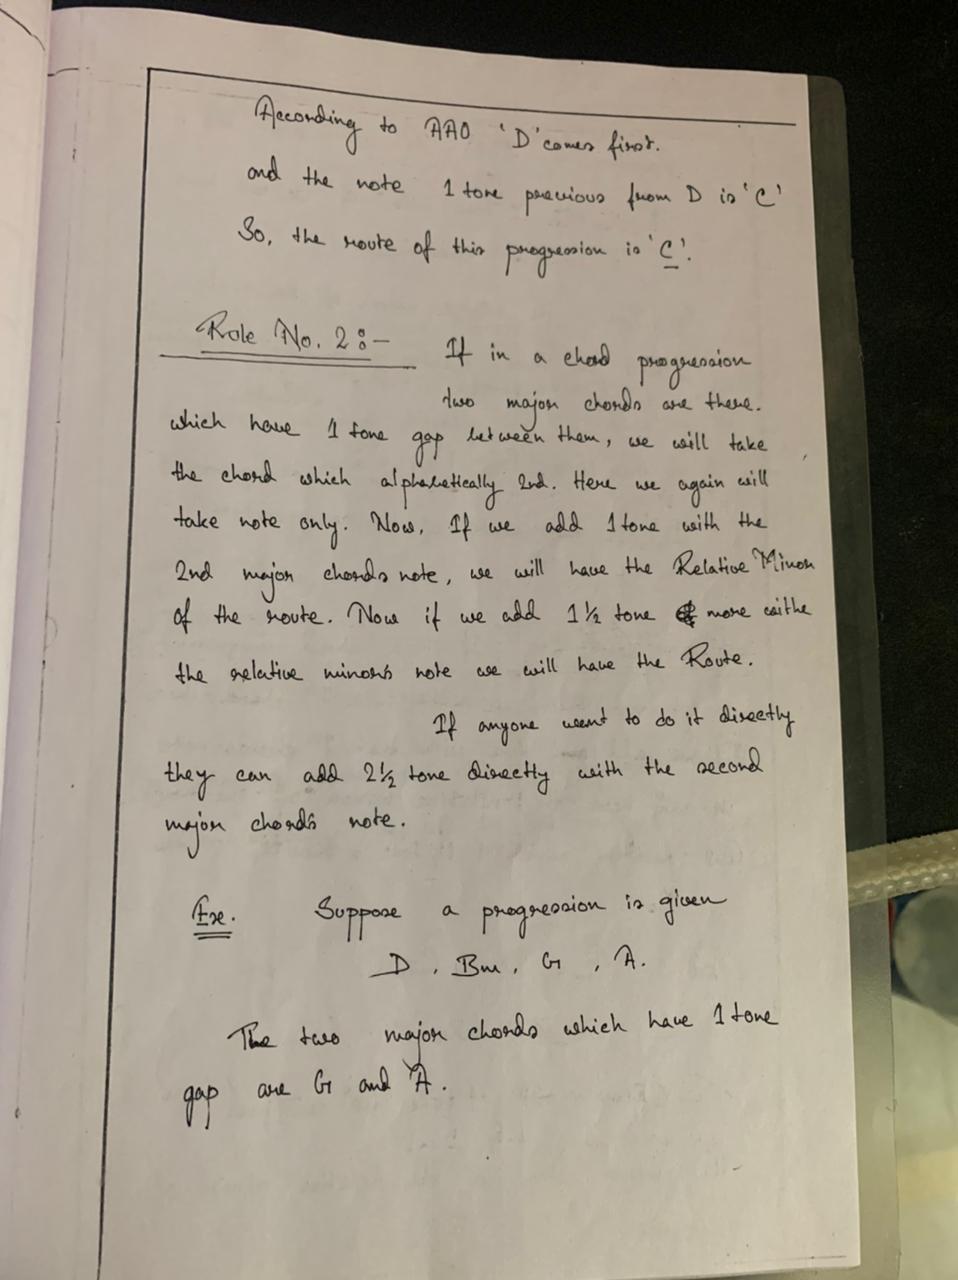 According to AAO 'D' comes first.
and the note 1 tone previous from D is 'C'
So, the route of this progression is 'C'.
Role No. 2:-
If in a chord progression
two major chords are there.
which have 1 tone gap between them, we will take
the chord which alphabetically 2nd. Here we again will
take note only. Now, If we add 1 tone with the
2nd major chords note, we will have the Relative Minor
of the route. Now if we add 1½ tone more withe
the relative minor's note we will have the Route.
If anyone want to do it directly
they can add 2½ tone directly with the second
major chord's note.
Exe. Suppose a progression is given
D, Bm, G, A.
The two major chords which have 1 tone
gap are G and A.